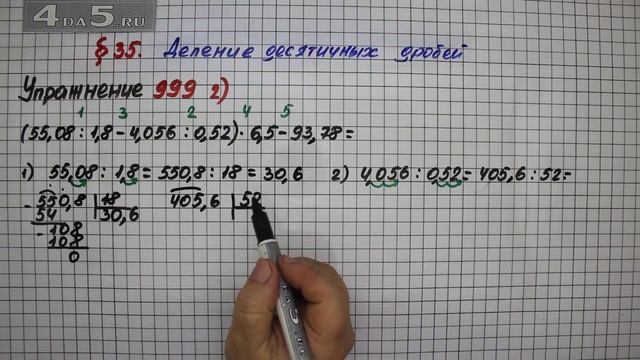 4DA5.RU
§ 35. Деление десятичных дробей
Упражнение 999 2)
1 3 2 4 5
(55,08 : 1,8 - 4,056 : 0,52) · 6,5 - 93,78 =
1) 55,08 : 1,8 = 550,8 : 18 = 30,6 2) 4,056 : 0,52 = 405,6 : 52 =
- 550,8 | 18 405,6 | 52
54 30,6
- 108
108
0